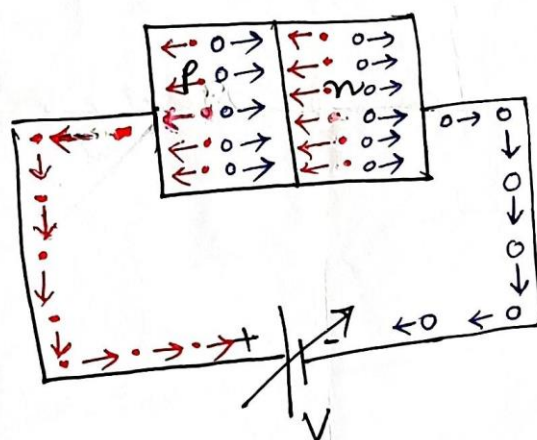 p n
+ -
V